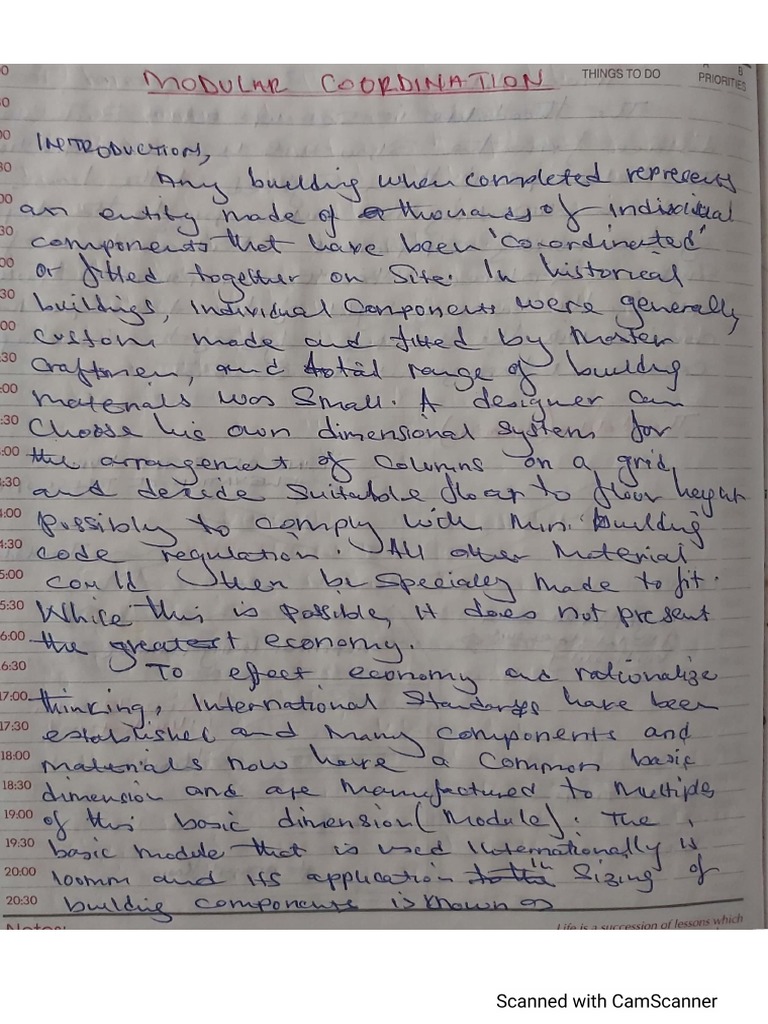 MODULAR COORDINATION
THINGS TO DO
B
PRIORITIES
INTRODUCTION,
Any building when completed represents
an entity made of thousands of individual
components that have been 'co-ordinated'
or fitted together on site. In historical
buildings, individual components were generally
custom made and fitted by master
craftsmen, and total range of building
materials was small. A designer can
choose his own dimensional system for
the arrangement of columns on a grid,
and decide suitable floor to floor height
possibly to comply with min. building
code regulation. All other material
could then be specially made to fit.
While this is possible, it does not present
the greatest economy.
To effect economy and rationalize
thinking, International Standards have been
established and many components and
materials now have a common basic
dimension and are manufactured to multiples
of this basic dimension (module). The
basic module that is used internationally is
100mm and its application in sizing of
building components is known as
30
00
30
00
30
00
30
00
30
00
:30
:00
4:30
5:00
5:30
6:00
6:30
17:00
17:30
18:00
18:30
19:00
19:30
20:00
20:30
Notes:
Life is a succession of lessons which
Scanned with CamScanner